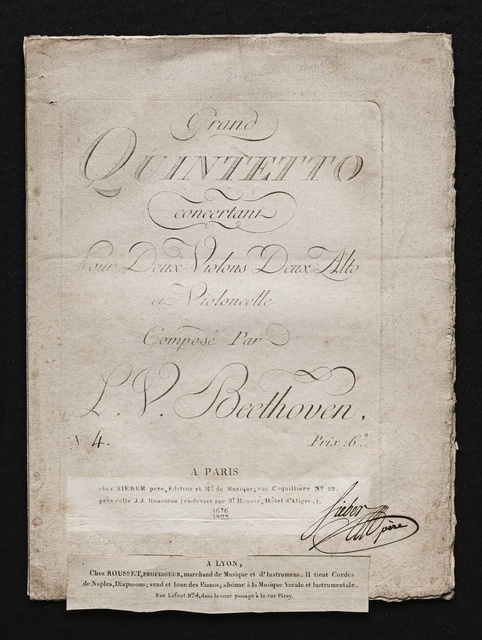 Grand
QUINTETTO
concertant
Pour Deux Violons Deux Alto
et Violoncelle
Composé Par
L. V. Beethoven.
N 4. Prix: 6.tt
A PARIS
chez SIEBER père, Editeur et Md. de Musique, rue Coquillière No. 22.
près celle J.J. Rousseau (ci-devant rue St Honoré, Hôtel d'Aligre.).
1676
1823
Sieber père
A LYON,
Chez ROUSSET, PROFESSEUR, marchand de Musique et d'Instrumens. Il tient Cordes
de Naples, Diapasons; vend et loue des Pianos; abonne à la Musique Vocale et Instrumentale.
Rue Lafont No 4, dans la cour passage à la rue Pizay.